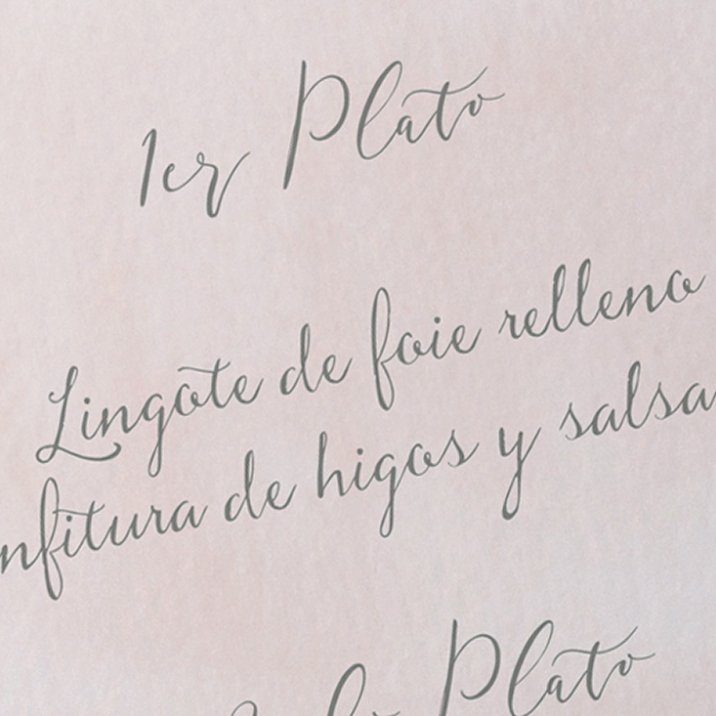 1er Plato
Lingote de foie relleno
nfitura de higos y salsa
Plato